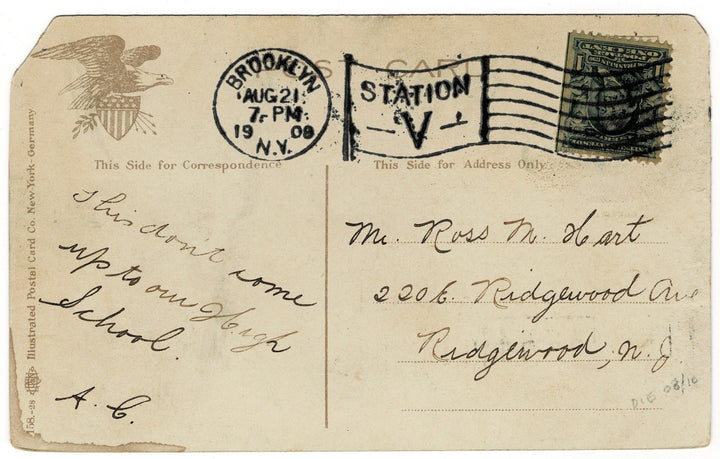 POST CARD
BROOKLYN
AUG 21
7- PM
1908
N.Y.
STATION
V
This Side for Correspondence
This Side for Address Only
This don't come
up to our High
School.
A. C.
Mr. Ross M. Hart
220 E. Ridgewood Ave
Ridgewood, N. J.
158-28 Illustrated Postal Card Co. New-York-Germany
DIE 08/10